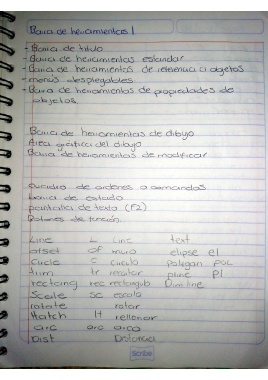 Barra de herramientas 1
- Barra de titulo
- Barra de herramientas estandar
- Barra de herramientas de referencia a objetos
- menús desplegables
- Barra de herramientas de propiedades de
objetos
Barra de herramientas de dibujo
Area grafica del dibujo
Barra de herramientas de modificar
cuadro de ordenes o comandos
barra de estado
pantalla de texto (F2)
Botones de función
Line L Line text
ofset of muro elipse el
Circle C circulo poligon pol
trim tr recortar pline Pl
rectang rec rectangulo Dim line
Scale sc escala
rotate rotar
Hatch H rellenar
arc arc arco
Dist Distancia
Scribe